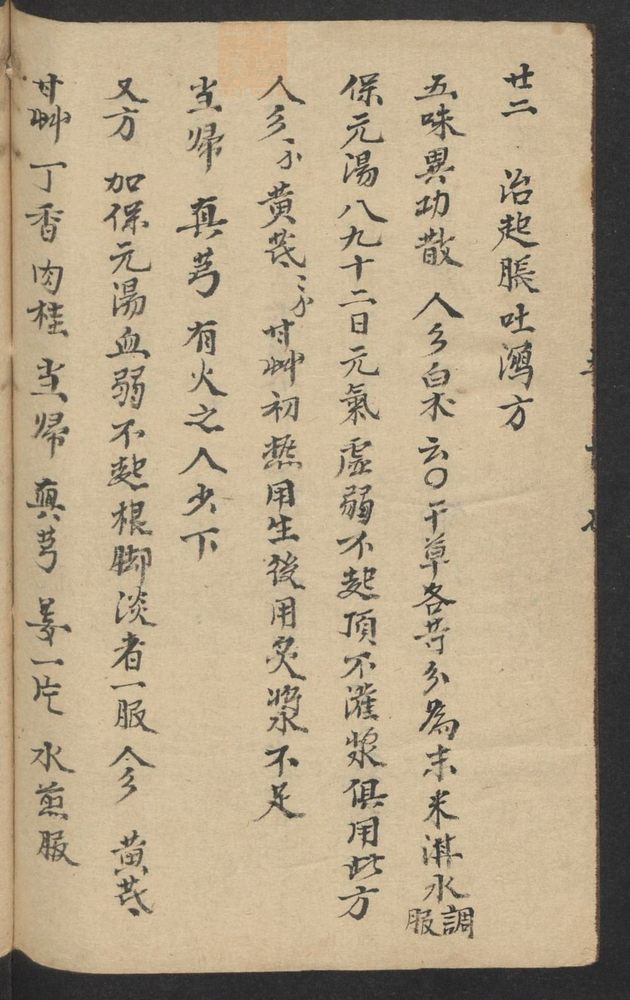 廿二 治起脹吐瀉方
五味異功散 人参白朮云〇干草各等分為末米淋水調服
保元湯八九十二日元氣虛弱不起頂不灌漿俱用此方
人参 黄芪 甘艸初熱用生後用炙漿不足
当帰 真芎 有火之人少下
又方 加保元湯血弱不起根脚淡者一服 人参 黄芪
甘艸 丁香 肉桂 当帰 真芎 姜一片 水煎服